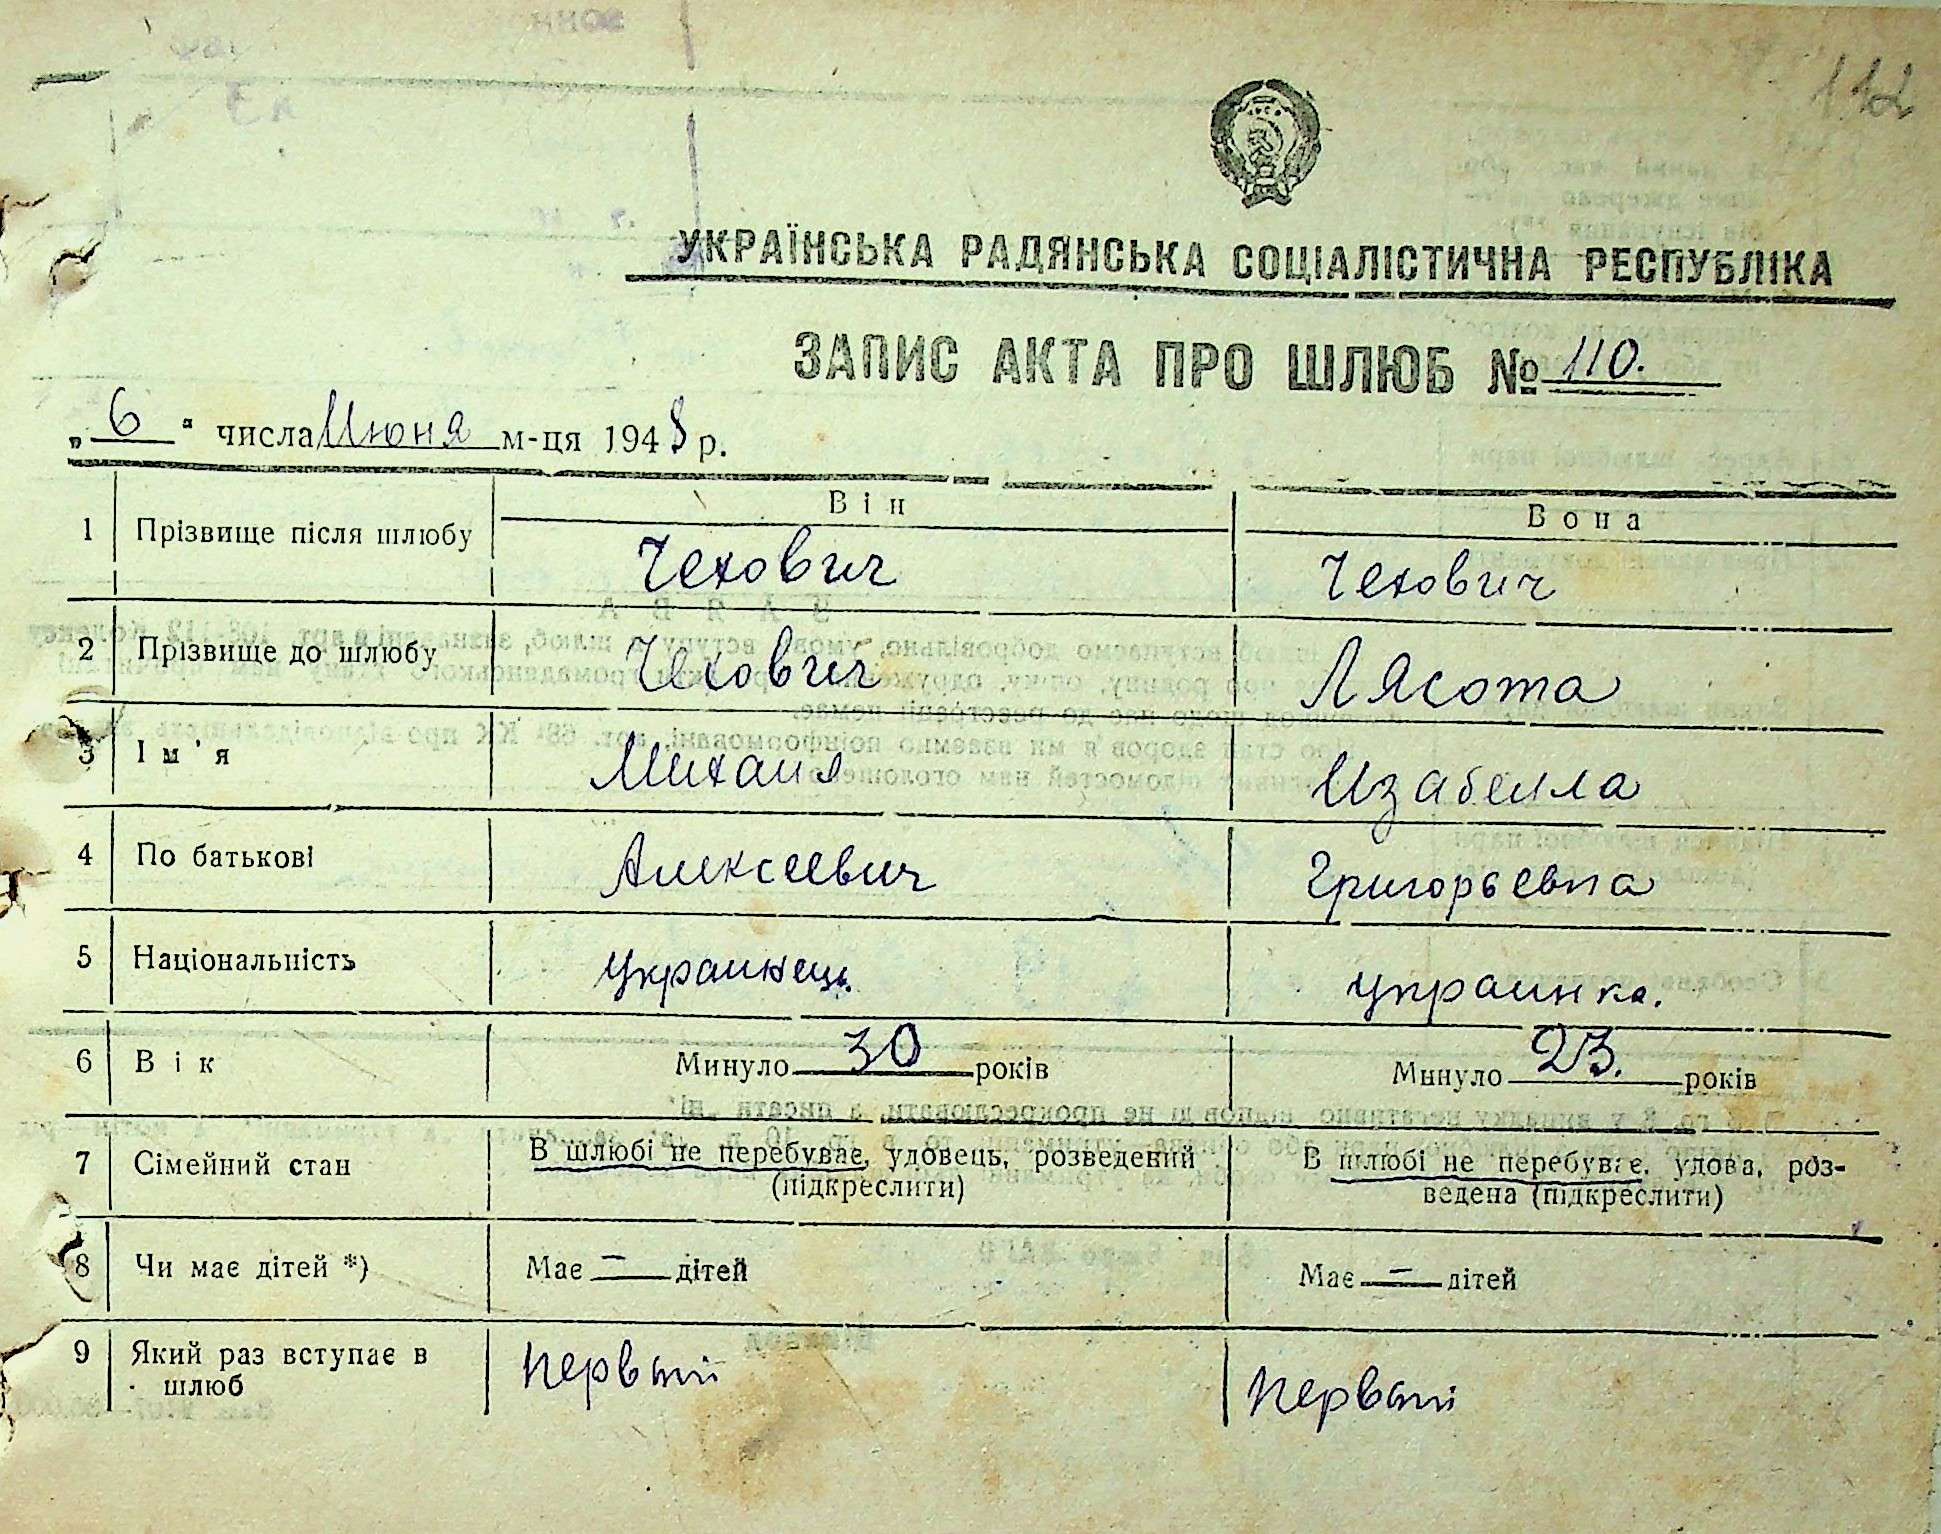 112
УКРАЇНСЬКА РАДЯНСЬКА СОЦІАЛІСТИЧНА РЕСПУБЛІКА
ЗАПИС АКТА ПРО ШЛЮБ № 110.
„6“ числа Июня м-ця 1948 р.
Він Вона
1 Прізвище після шлюбу Чехович Чехович
2 Прізвище до шлюбу Чехович Лясота
3 Ім'я Михаил Изабелла
4 По батькові Алексеевич Григорьевна
5 Національність украинець. украинка.
6 Вік Минуло 30 років Минуло 23. років
7 Сімейний стан В шлюбі не перебуває, удовець, розведений В шлюбі не перебуває, удова, роз-
(підкреслити) ведена (підкреслити)
8 Чи має дітей *) Має — дітей Має — дітей
9 Який раз вступає в первый первый
шлюб